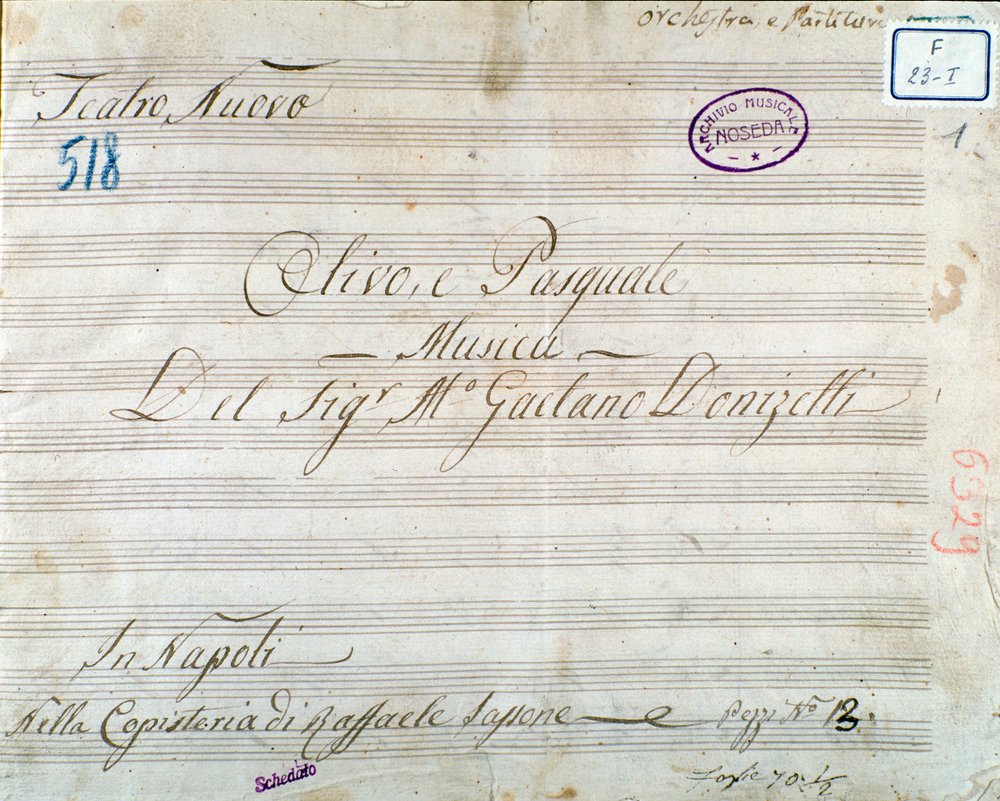 Orchestra, e Partitura
F
23-I
Teatro Nuovo
ARCHIVIO MUSICALE
NOSEDA
518
1
Olivo, e Pasquale
Musica
Del Sigr Mo Gaetano Donizetti
6329
In Napoli
Nella Copisteria di Raffaele Sassone Pezzi No 13.
Schedato
70 1/2